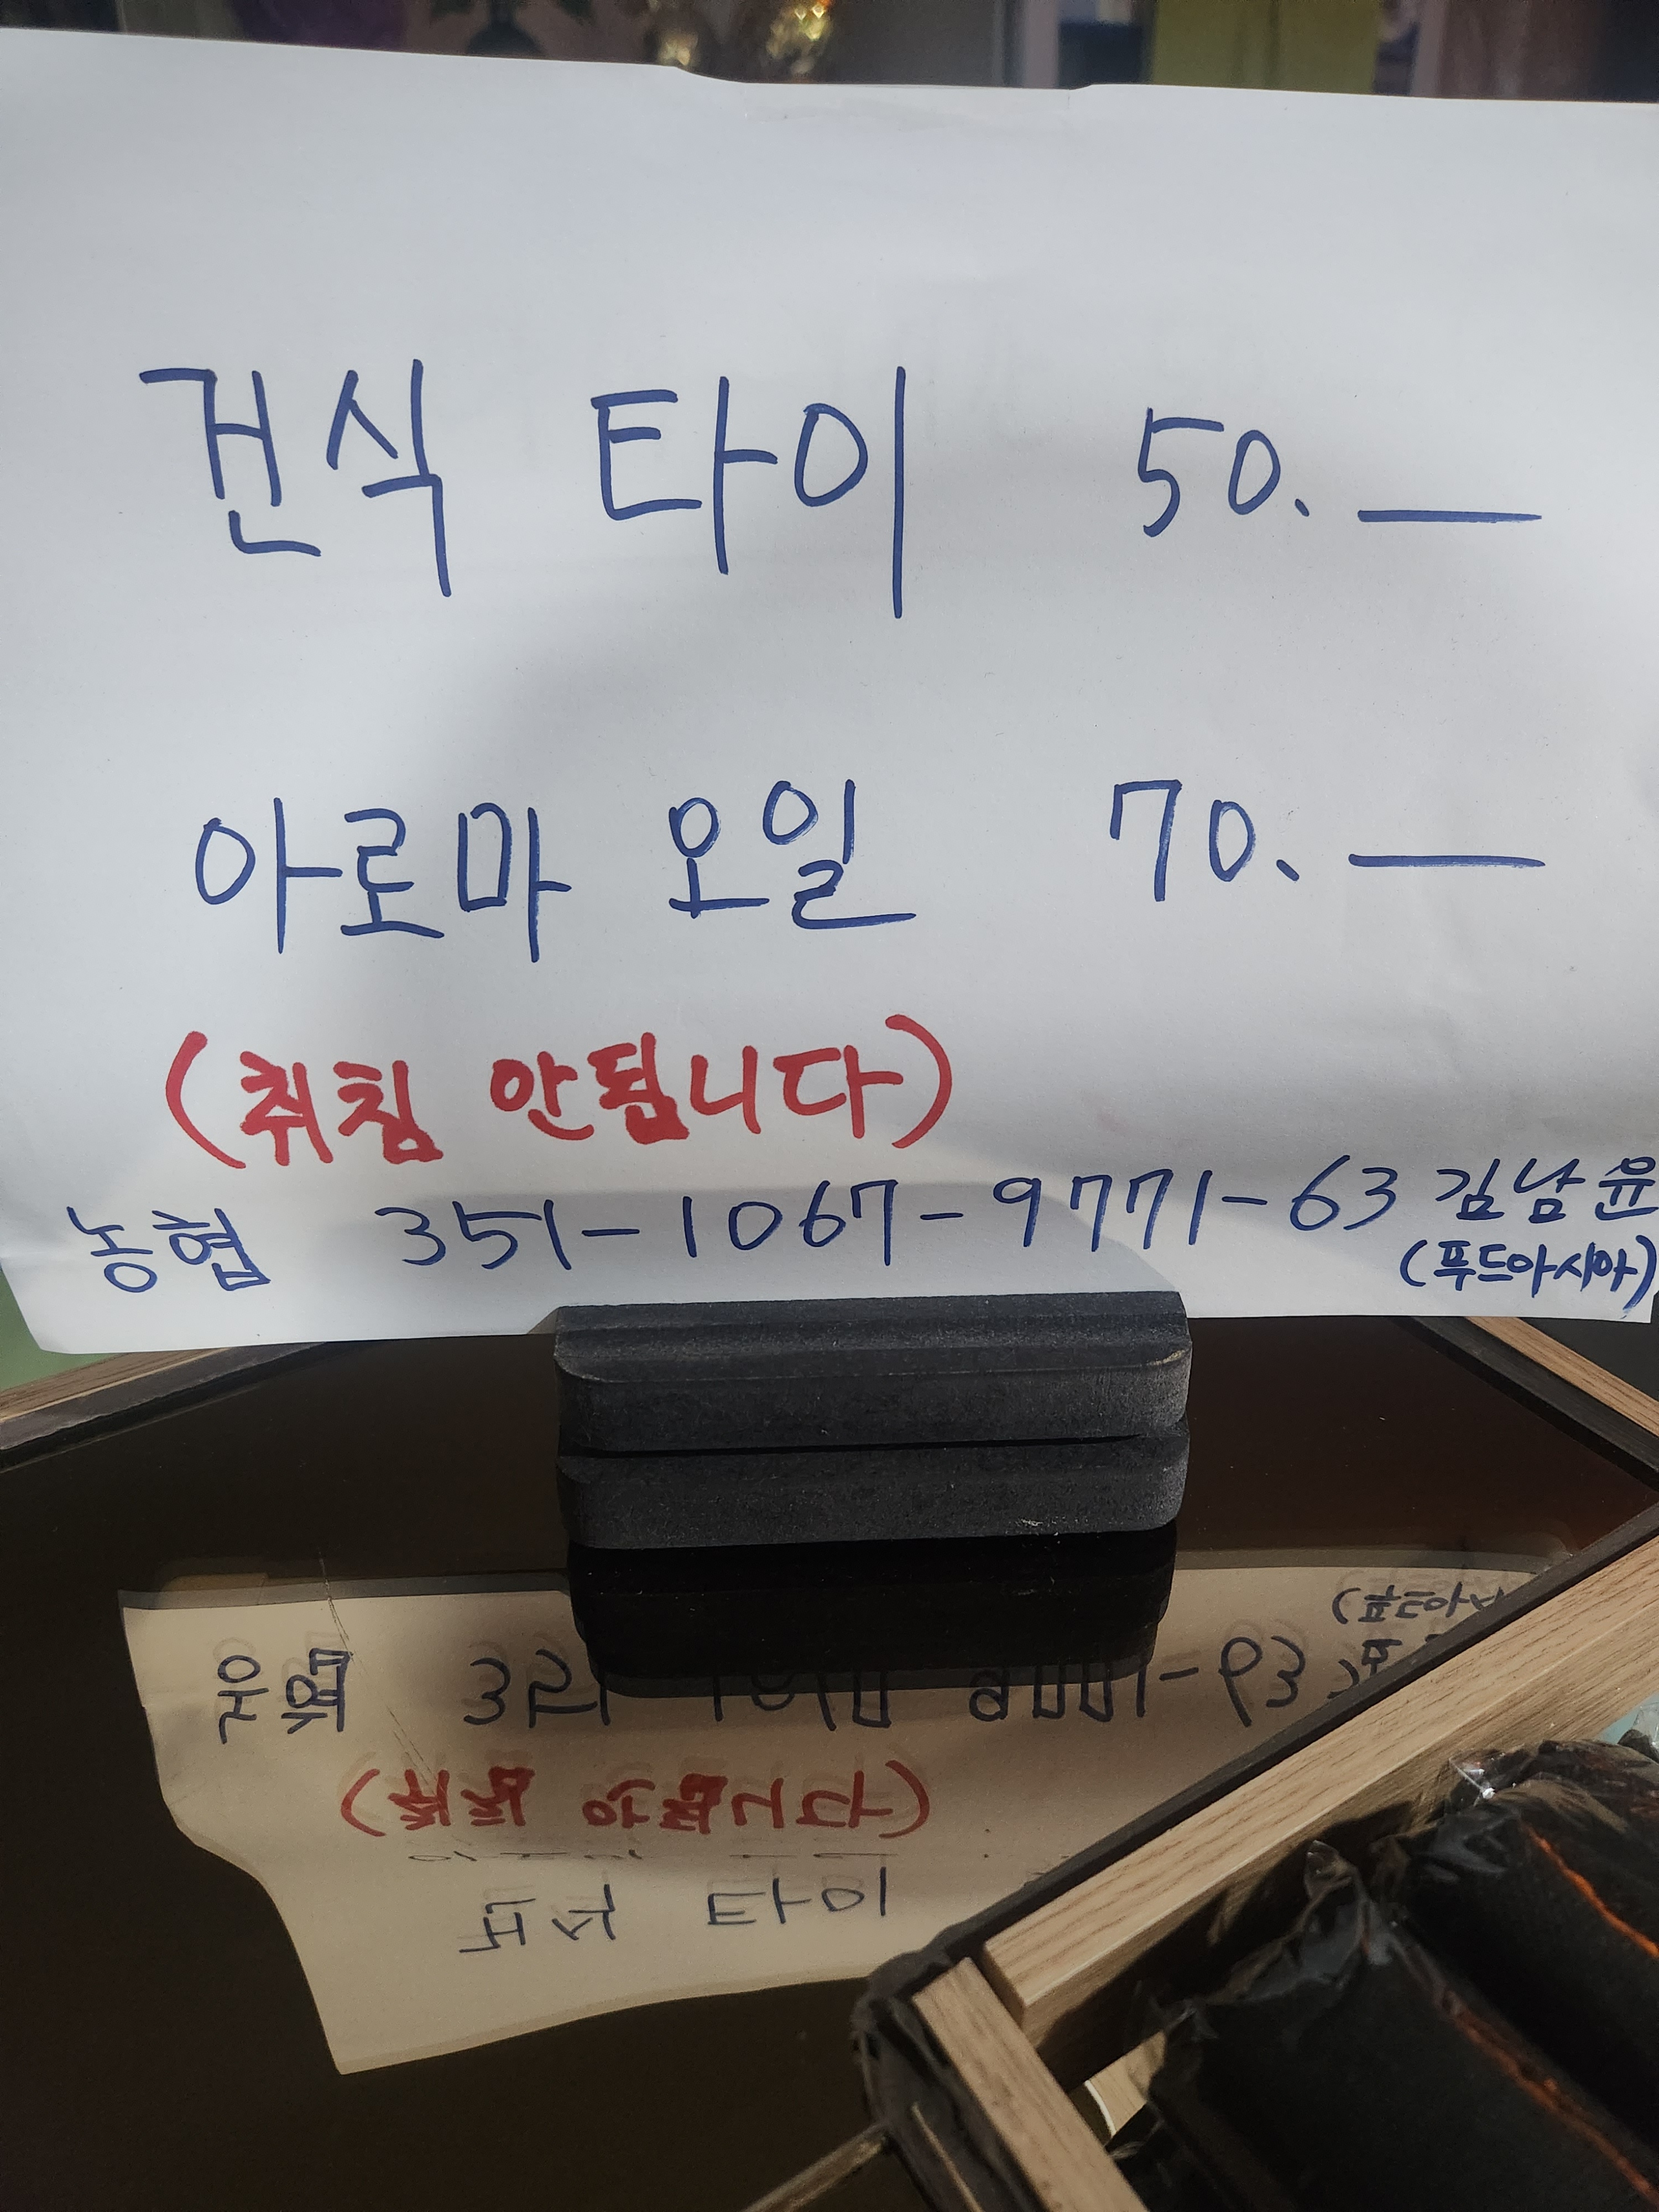 건식 타이 50.—
아로마 오일 70.—
(취침 안됩니다)
농협 351-1067-9771-63 김남윤
(푸드아시아)